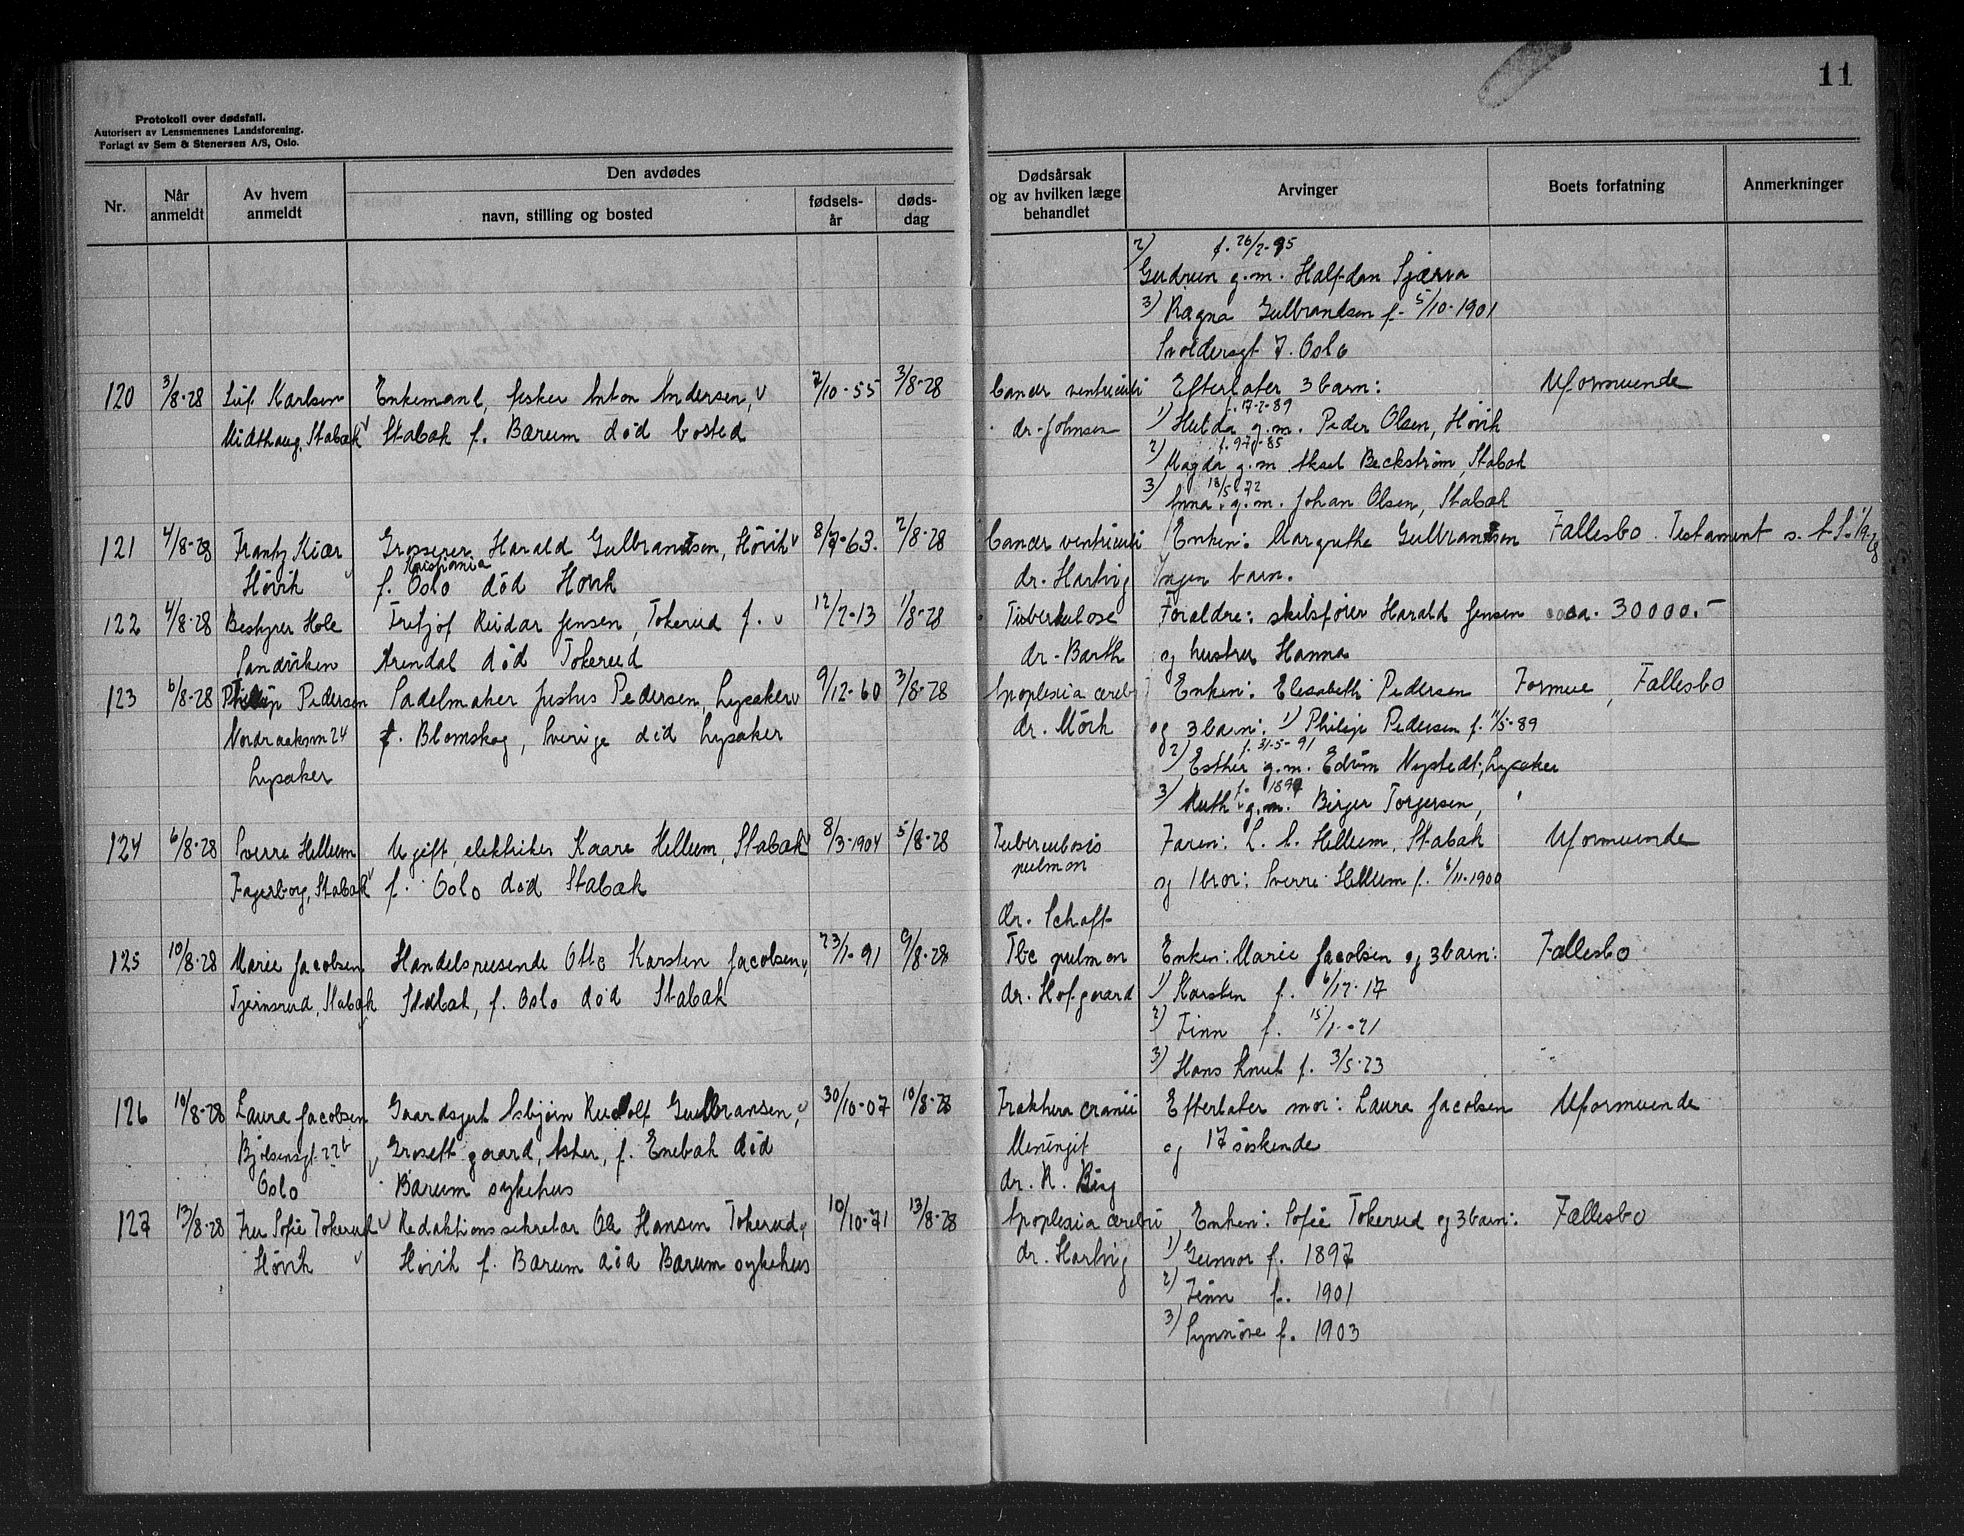 11
Protokoll over dødsfall.
Autorisert av Lensmennenes Landsforening.
Forlagt av Sem & Stenersen A/S, Oslo.
Nr.
Når anmeldt
Av hvem anmeldt
Den avdødes
navn, stilling og bosted
fødsels-år
døds-dag
Dødsårsak og av hvilken læge behandlet
Arvinger
Boets forfatning
Anmerkninger
2) f. 26/2-95
Gudrun g.m. Halfdan
3) Ragna Gulbrandsen f. 5/10-1901
Svoldersgt 7. Oslo
120 3/8-28 Karlsen Enkemand, fisker Anton Andersen, 7/10-55 3/8-28 Cancer ventriculi Efterlater 3 barn: Uformuende
Midthaug, Stabæk Stabæk f. Bærum død bosted dr. Johnsen 1) Hulda g.m. Peder Olsen, Høvik
f. 17-2-89
2) Magda g.m. Aksel Beckstrøm, Stabæk
3) Anna g.m. Johan Olsen, Stabæk
18/5 72
121 4/8-28 Frantz Kiær Grosserer Harald Gulbrantsen, Høvik 8/7-63. 2/8-28 Cancer ventriculi Enken: Margrethe Gulbrantsen Fællesbo. Testament
Høvik f. Kristiania Oslo død Høvik dr. Hartvig Ingen barn.
122 4/8-28 Bestyrer Hole Fritjof Reidar Jensen, Tokerud f. 12/2-13 1/8-28 Tuberkulose Forældre: skibsfører Harald Jensen ca. 30000.-
Sandviken Arendal død Tokerud dr. Barth og hustru Hanna
123 6/8-28 Philip Pedersen Sadelmaker Justus Pedersen, Lysaker 9/12-60 3/8-28 Apoplexia cerebri Enken: Elisabeth Pedersen Formue, Fællesbo
Nordraaksvn 24 f. Blomskog, Sverige død Lysaker dr. Mörk og 3 barn: 1) Philip Pedersen f. 11/5-89
Lysaker 2) Esther g.m. Edvin Nystedt, Lysaker
f. 31-5-91
3) Ruth g.m. Birger Torgersen, "
124 6/8-28 Sverre Hellum Ugift, elektriker Kaare Hellum, Stabæk 8/3-1904 5/8-28 Tuberculosis pulmon Faren: Hellum, Stabæk Uformuende
Fagerborg, Stabæk f. Oslo død Stabæk og 1 bror: Sverre Hellum f. 6/11-1900
dr. Schaft
125 10/8-28 Marie Jacobsen Handelsreisende Otto Karsten Jacobsen, 23/1-91 9/8-28 Tbc pulmon Enken: Marie Jacobsen og 3 barn: Fællesbo
Tjernsrud, Stabæk Stabæk, f. Oslo død Stabæk dr. Hofgaard 1) Karsten f. 6/12-17
2) Finn f. 15/1-21
3) Hans Knut f. 3/5-23
126 10/8-28 Laura Jacobsen Gaardsgut Asbjørn Rudolf Gulbransen, 30/10-07 10/8-28 Fraktura cranii Efterlater mor: Laura Jacobsen Uformuende
Bjølsensgt 22b Grosett gaard, Asker, f. Enebak død Meningit og 17 søskende
Oslo Bærum sykehus dr. R.
127 13/8-28 Fru Sofie Tokerud Redaktionssekretær Ole Hansen Tokerud, 10/10-71 13/8-28 Apoplexia cerebri Enken: Sofie Tokerud og 3 barn: Fællesbo
Høvik Høvik f. Bærum død Bærum sykehus dr. Hartvig 1) Gunvor f. 1897
2) Finn f. 1901
3) Synnøve f. 1903